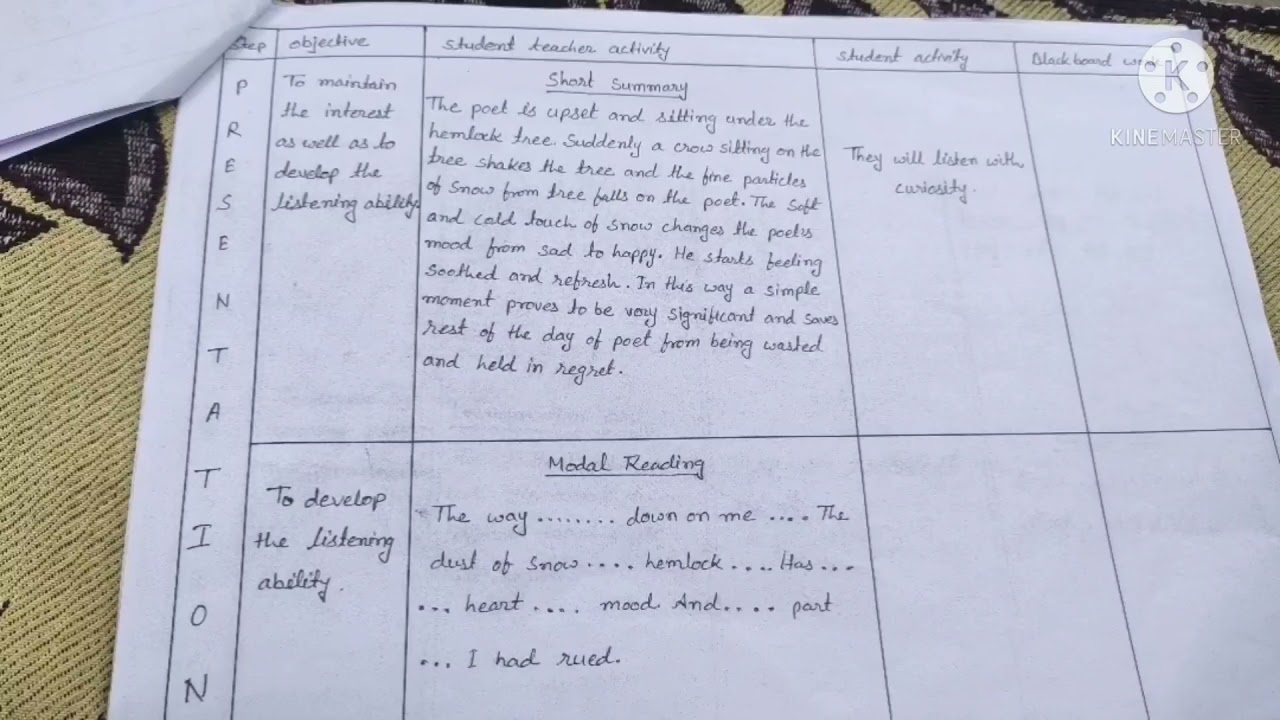 Step objective Student teacher activity Student activity Blackboard work
PRESENTATION
To maintain
the interest
as well as to
develop the
listening ability
Short Summary
The poet is upset and sitting under the
hemlock tree. Suddenly a crow sitting on the
tree shakes the tree and the fine particles
of snow from tree falls on the poet. The soft
and cold touch of snow changes the poet's
mood from sad to happy. He starts feeling
soothed and refresh. In this way a simple
moment proves to be very significant and saves
rest of the day of poet from being wasted
and held in regret.
They will listen with
curiosity.
To develop
the listening
ability.
Modal Reading
The way ........ down on me .... The
dust of snow .... hemlock .... Has ...
... heart .... mood And .... part
... I had rued.
KINEMASTER